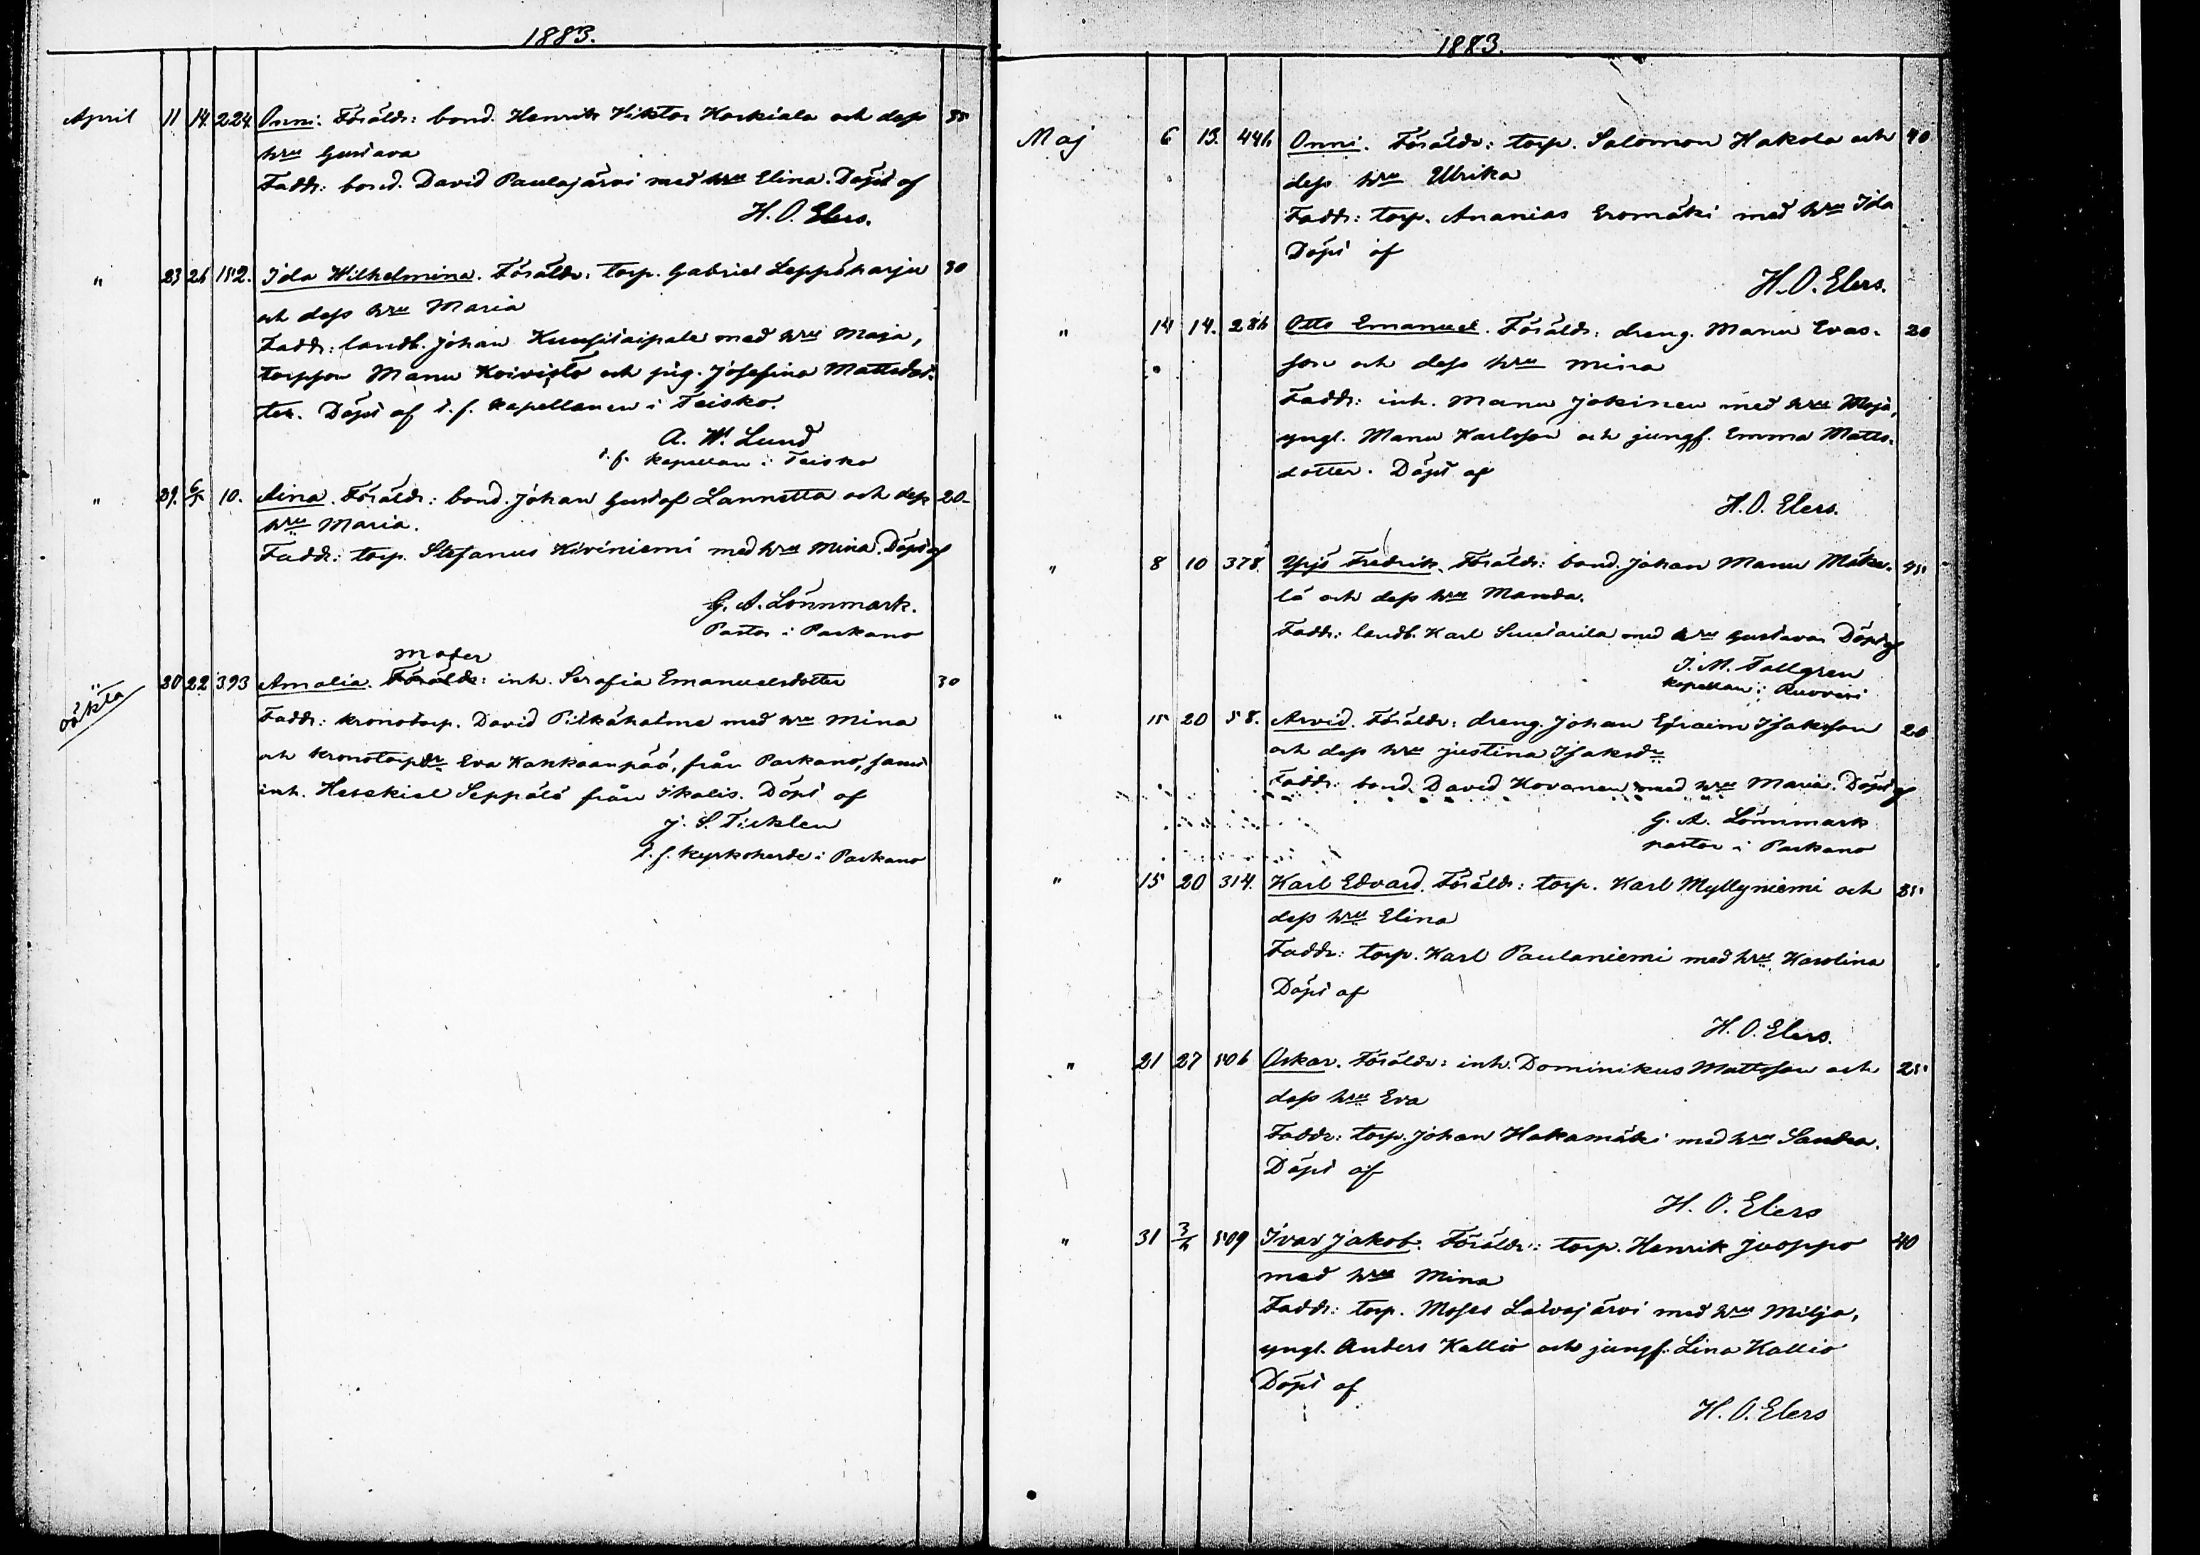 1883.
April 11 14. 224. Onni. Föräldr: bond. Henrik Viktor Korkiala och dess 35
hru Gustava
Faddr: bond. David Paulajärvi med hru Elina. Döpt af
H. O. Elers.
" 23 26 182. Ida Wilhelmina. Föräldr: torp. Gabriel Leppäharju 30
och dess hru Maria
Faddr: landb. Johan Kuusitaipale med hru Maja,
torpson Manu Koivisto och pig. Josefina Mattsdot-
ter. Döpt af t. f. kapellanen i Teisko.
A. W. Lund
t. f. kapellan i Teisko
" 29. 6/5 10. Aina. Föräldr: bond. Johan Gustaf Lannetta och dess 20
hru Maria.
Faddr: torp. Stefanus Kiviniemi med hru Mina. Döpt af
G. A. Lönnmark.
Pastor i Parkano
moder
" oäkta 20 22 393 Amalia. Föräldr: inh. Serafia Emanuelsdotter 30
Faddr: kronotorp. David Pitkähalme med hru Mina
och kronotorpdr Eva Kankaanpää, från Parkano, samt
inh. Heiskiel Seppälä från Ikalis. Döpt af
J. S. Ticklen
t. f. kyrkoherde i Parkano
1883.
Maj 6 13. 446. Onni. Föräldr: torp. Salomon Hakola och 40
dess hru Ulrika
Faddr: torp. Ananias Eromäki med hru Ida
Döpt af
H. O. Elers.
" 14 14. 286 Otto Emanuel. Föräldr: dreng. Manu Evas- 20
son och dess hru Mina
Faddr: inh. Manu Jokinen med hru Maja,
yngl. Manu Karlsson och jungf. Emma Matts-
dotter. Döpt af
H. O. Elers.
" 8 10 378. Yrjö Fredrik. Föräldr: bond. Johan Manu Mäke- 45
lä och dess hru Manda.
Faddr: landb. Karl Suutarila med hru Gustava. Döpt af
I. M. Tallgren
kapellan i Ruovesi
" 15 20 58. Arvid. Föräldr: dreng. Johan Efraim Isaksson 20
och dess hru Justina Isaksdr
Faddr: bond. David Kovanen med hru Maria. Döpt af
G. A. Lönnmark
pastor i Parkano
" 15 20 314. Karl Edvard. Föräldr: torp. Karl Myllyniemi och 35
dess hru Elina
Faddr: torp. Karl Paulaniemi med hru Karolina
Döpt af
H. O. Elers.
" 21 27 506 Oskar. Föräldr: inh. Dominikus Mattsson och 25
dess hru Eva
Faddr: torp. Johan Hakamäki med hru Sandra.
Döpt af
H. O. Elers
" 31 3/6 509 Ivar Jakob. Föräldr: torp. Henrik Juoppo 40
med hru Mina
Faddr: torp. Moses Latvajärvi med hru Milja,
yngl. Anders Kallio och jungf. Lina Kallio
Döpt af
H. O. Elers